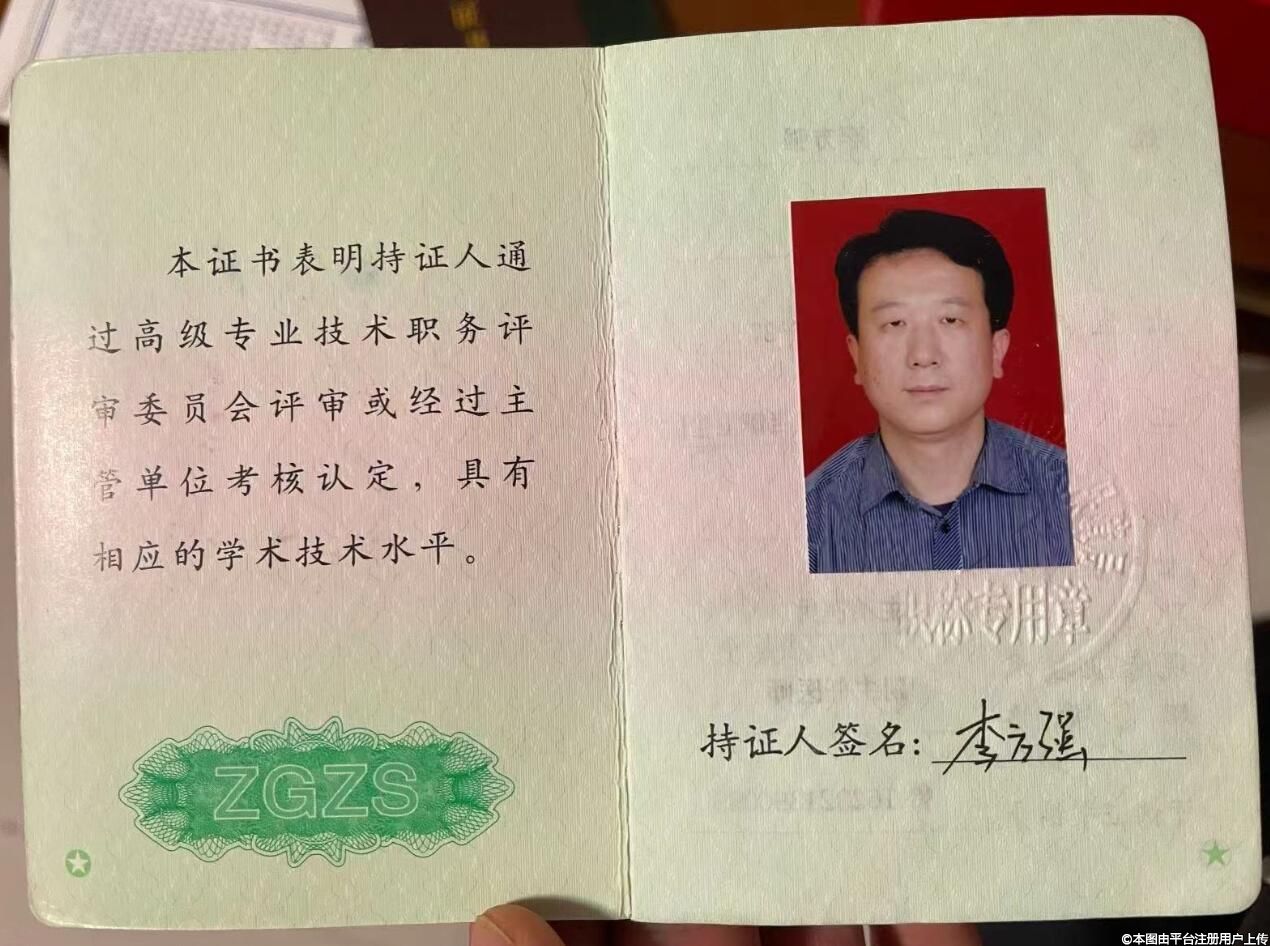 本证书表明持证人通
过高级专业技术职务评
审委员会评审或经过主
管单位考核认定，具有
相应的学术技术水平。
ZGZS
职称专用章
持证人签名：李方强
©本图由平台注册用户上传